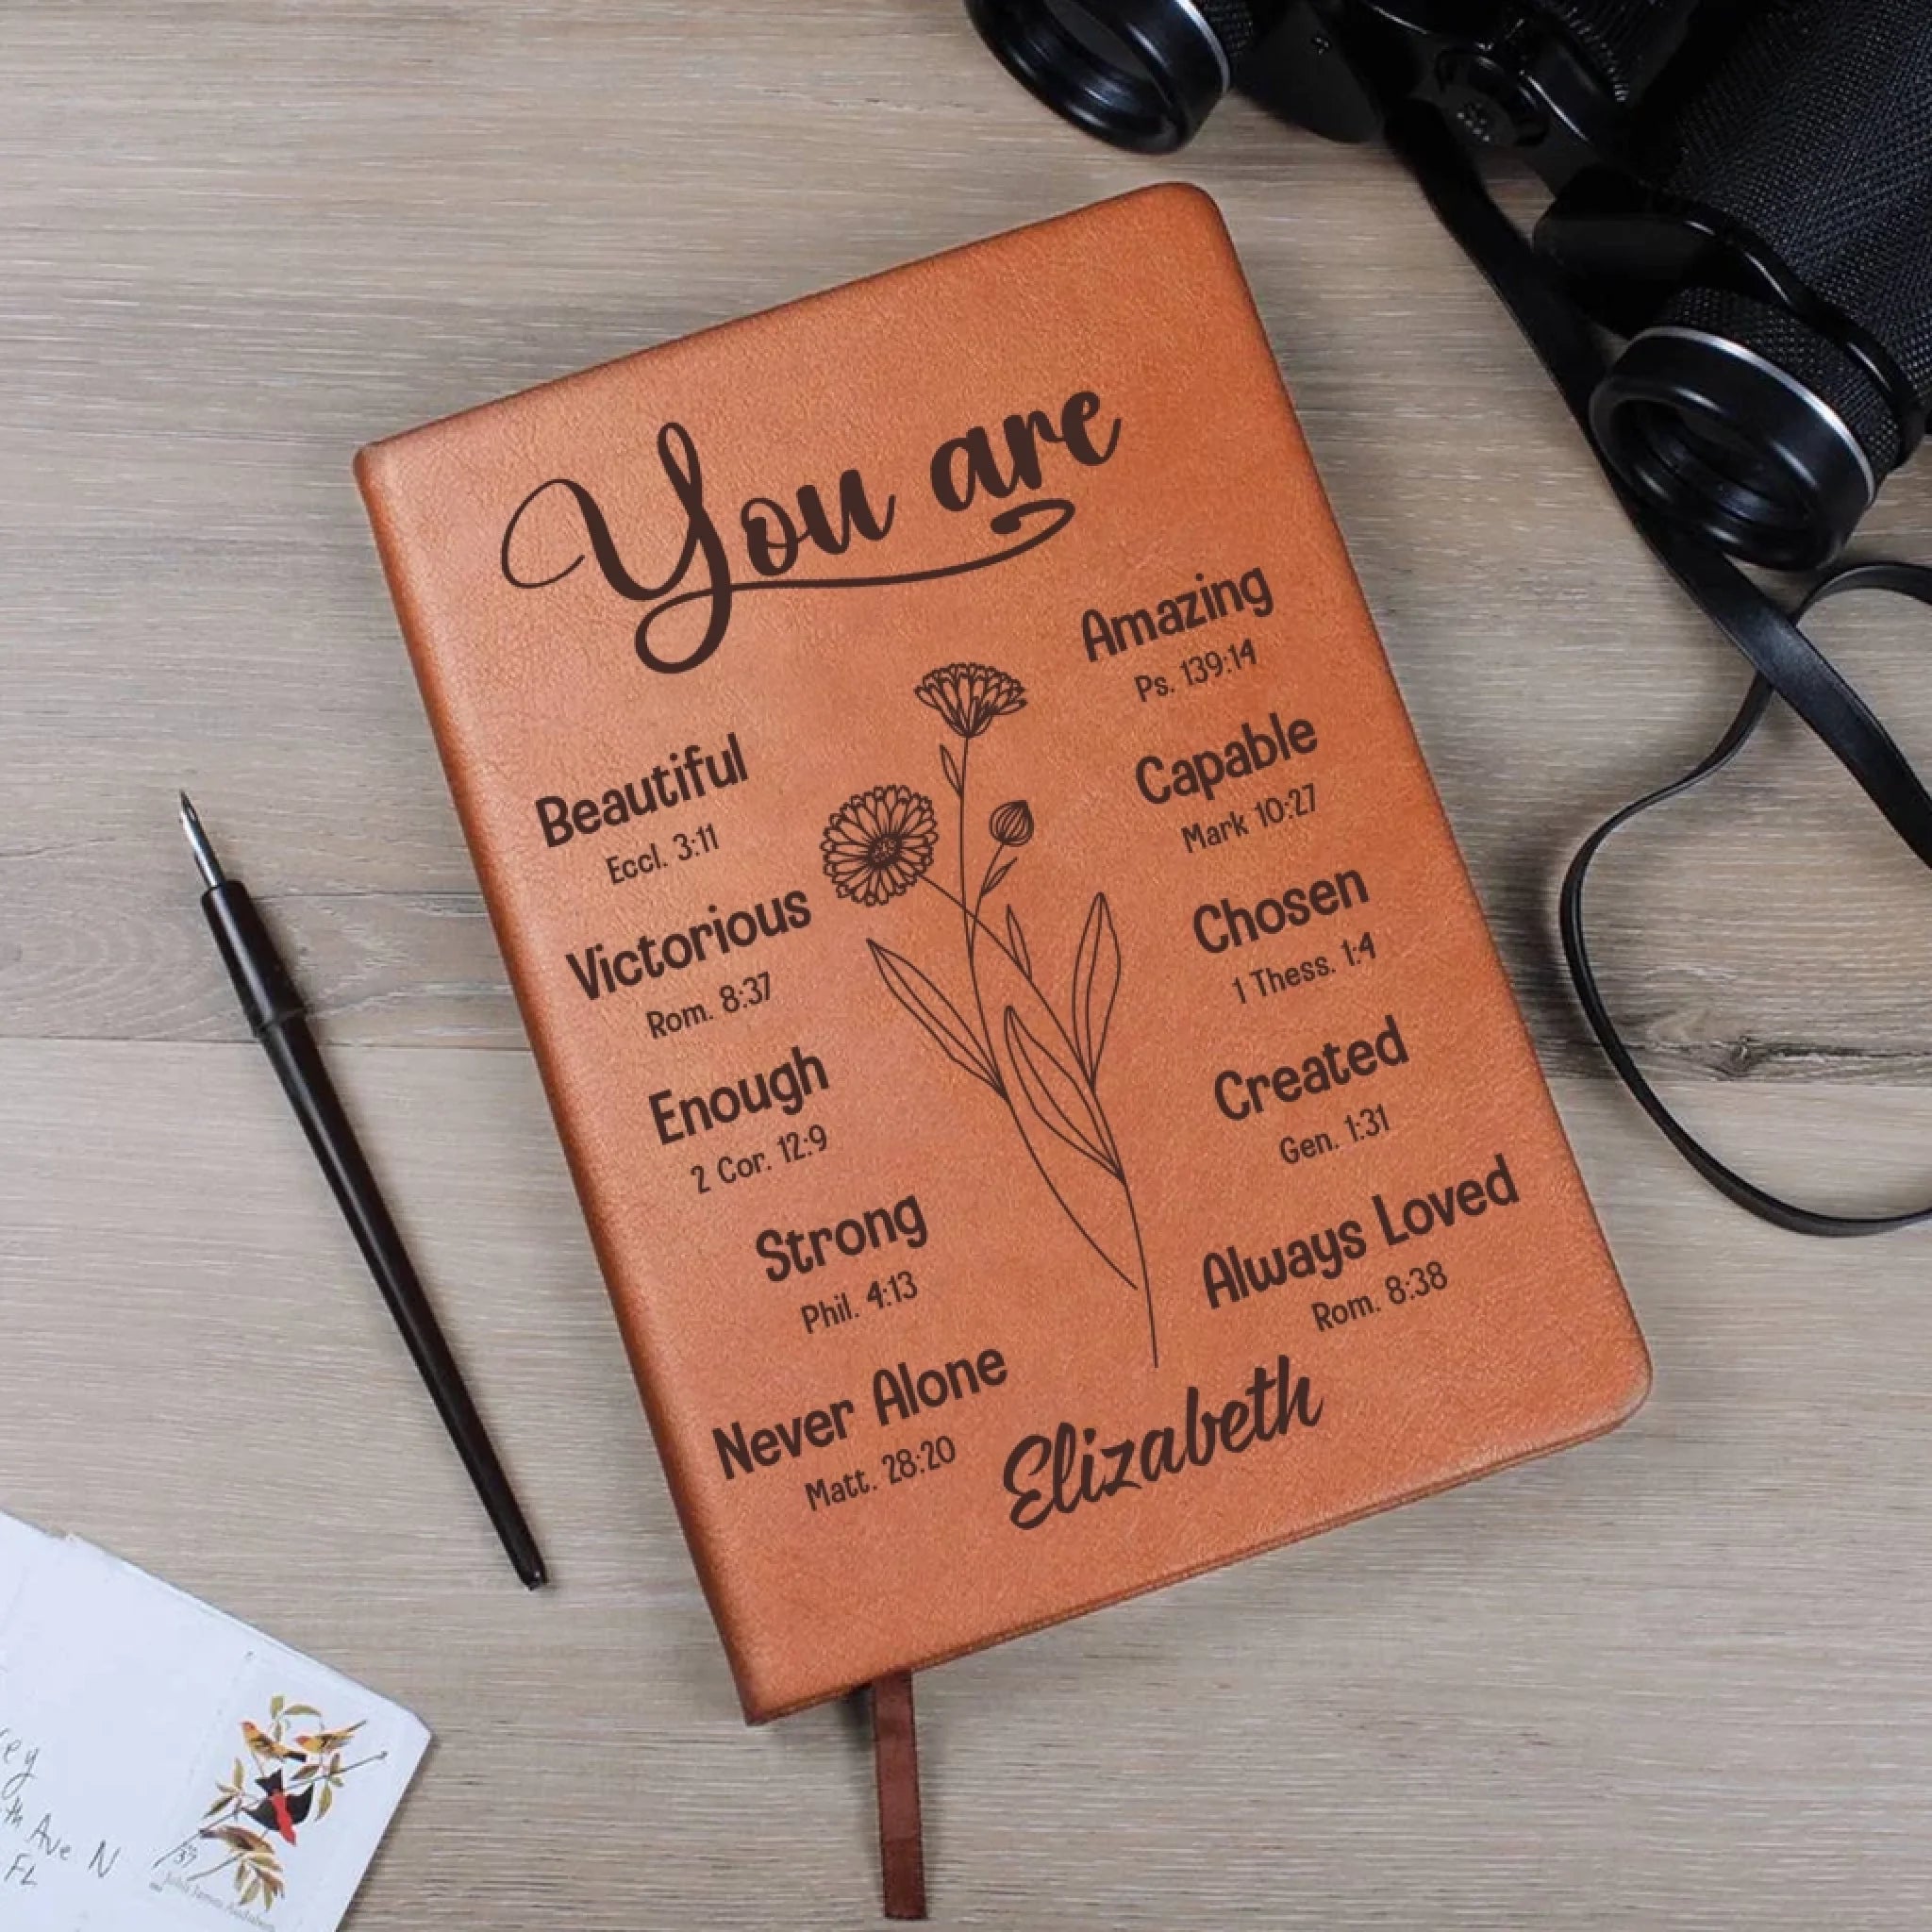 You are
Amazing
Ps. 139:14
Beautiful
Eccl. 3:11
Capable
Mark 10:27
Victorious
Rom. 8:37
Chosen
1 Thess. 1:4
Enough
2 Cor. 12:9
Created
Gen. 1:31
Strong
Phil. 4:13
Always Loved
Rom. 8:38
Never Alone
Matt. 28:20
Elizabeth
ey
th Ave N
FL
37